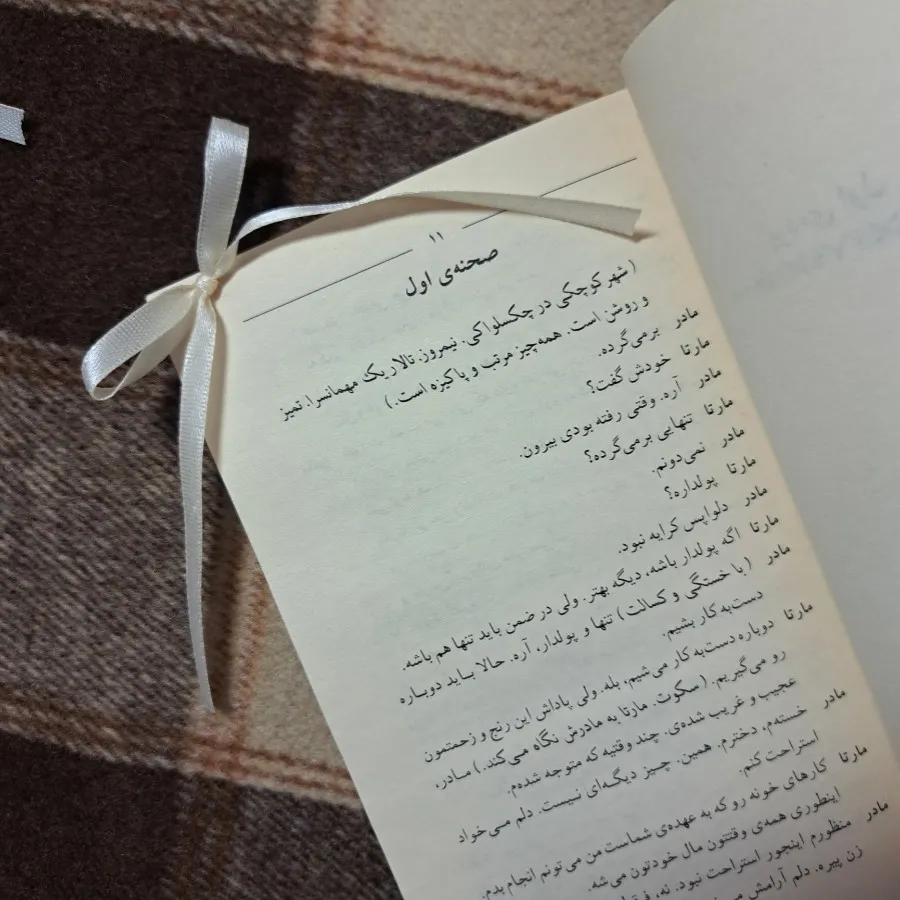 ۱۱
صحنه‌ی اول
(شهر کوچکی در چکسلواکی. نیمروز. تالار یک مهمانسرا. تمیز
و روشن است. همه‌چیز مرتب و پاکیزه است.)
مادر برمی‌گرده.
مارتا خودش گفت؟
مادر آره. وقتی رفته بودی بیرون.
مارتا تنهایی برمی‌گرده؟
مادر نمی‌دونم.
مارتا پولداره؟
مادر دلواپس کرایه نبود.
مارتا اگه پولدار باشه، دیگه بهتر. ولی در ضمن باید تنها هم باشه.
مادر (با خستگی و کسالت) تنها و پولدار، آره. حالا باید دوباره
دست‌به کار بشیم.
مارتا دوباره دست‌به کار می‌شیم، بله. ولی پاداش این رنج و زحمتمون
رو می‌گیریم. (سکوت. مارتا به مادرش نگاه می‌کند.) مادر،
عجیب و غریب شده‌ی. چند وقتیه که متوجه شده‌م.
مادر خسته‌م، دخترم. همین. چیز دیگه‌ای نیست. دلم می‌خواد
استراحت کنم.
مارتا کارهای خونه رو که به عهده‌ی شماست من می‌تونم انجام بدم.
اینطوری همه‌ی وقتتون مال خودتون می‌شه.
مادر منظورم اینجور استراحت نبود. نه،
زن پیره. دلم آرامش